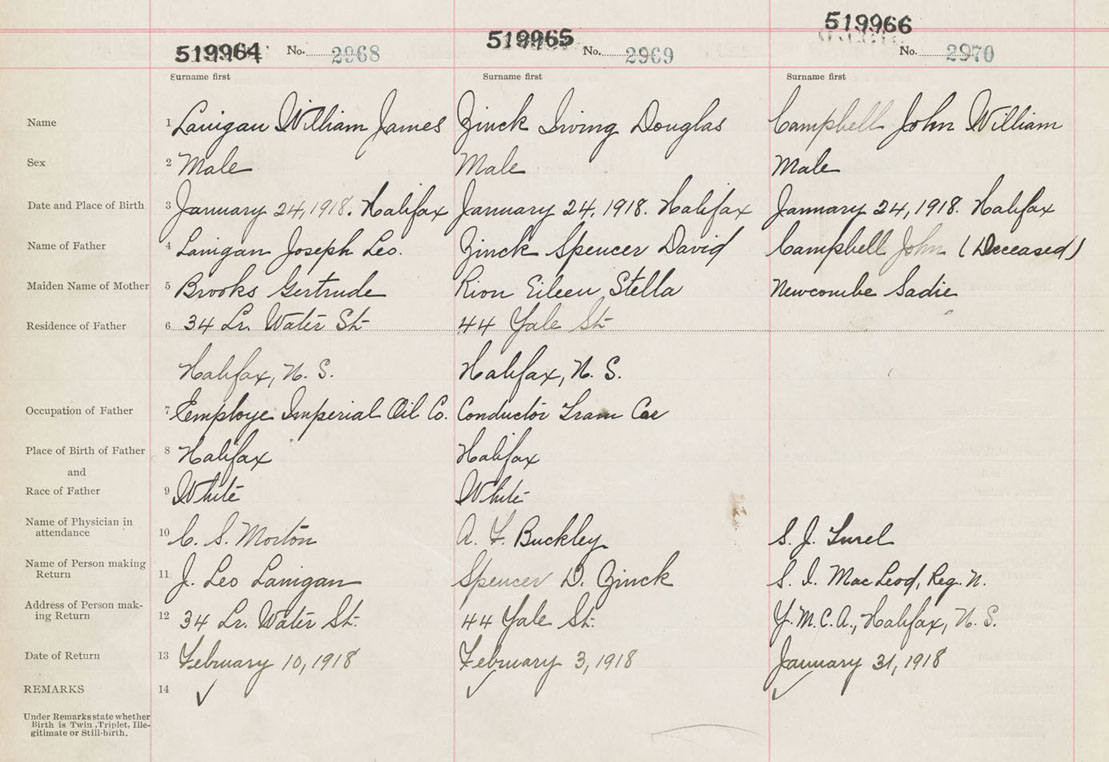 519964 No. 2968 519965 No. 2969 519966 No. 2970
Surname first Surname first Surname first
Name 1 Lanigan William James Zinck Irving Douglas Campbell John William
Sex 2 Male Male Male
Date and Place of Birth 3 January 24, 1918. Halifax January 24, 1918. Halifax January 24, 1918. Halifax
Name of Father 4 Lanigan Joseph Leo. Zinck Spencer David Campbell John (Deceased)
Maiden Name of Mother 5 Brooks Gertrude Rion Eileen Stella Newcombe Sadie
Residence of Father 6 34 Lr. Water St. 44 Yale St.
Halifax, N. S. Halifax, N. S.
Occupation of Father 7 Employe Imperial Oil Co. Conductor Tram Car
Place of Birth of Father 8 Halifax Halifax
and
Race of Father 9 White White
Name of Physician in
attendance 10 C. S. Morton A. F. Buckley S. J.
Name of Person making
Return 11 J. Leo Lanigan Spencer D. Zinck S. I. MacLeod, Reg. N.
Address of Person mak-
ing Return 12 34 Lr. Water St. 44 Yale St. Y.M.C.A., Halifax, N. S.
Date of Return 13 February 10, 1918 February 3, 1918 January 31, 1918
REMARKS 14 ✓ ✓ ✓
Under Remarks state whether
Birth is Twin, Triplet, Ille-
gitimate or Still-birth.